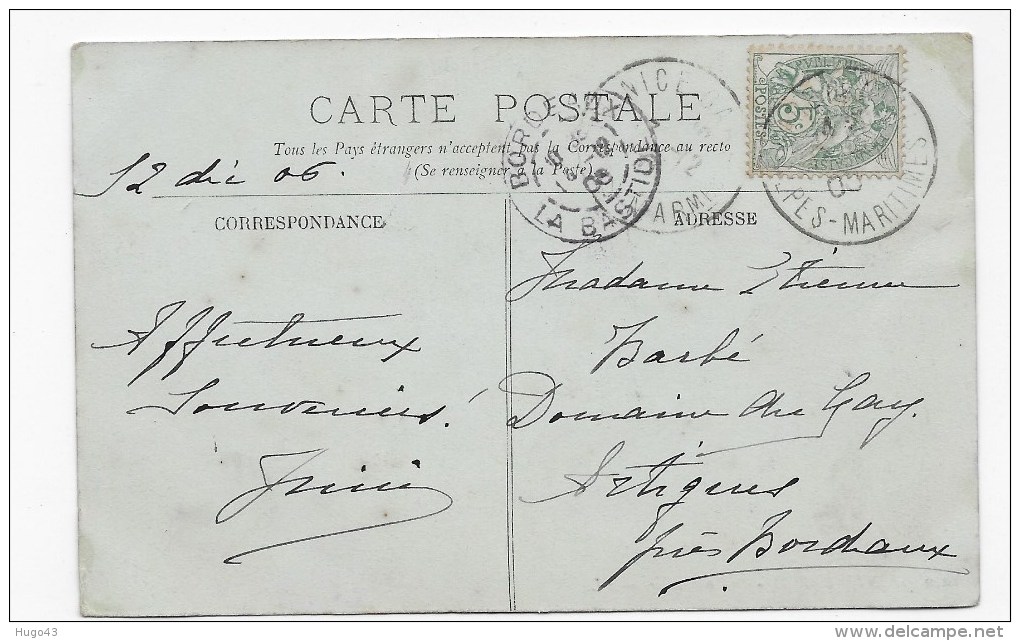 CARTE POSTALE
Tous les Pays étrangers n'acceptent pas la Correspondance au recto
(Se renseigner à la Poste)
12 déc 06.
CORRESPONDANCE
ADRESSE
Affectueux
Souvenirs!
Madame Etienne
Barbé
Domaine du Gay.
Artigues
près Bordeaux
NICE
LA BASTIDE
ALPES-MARITIMES
POSTES
5
Hugo43
delcampe.net